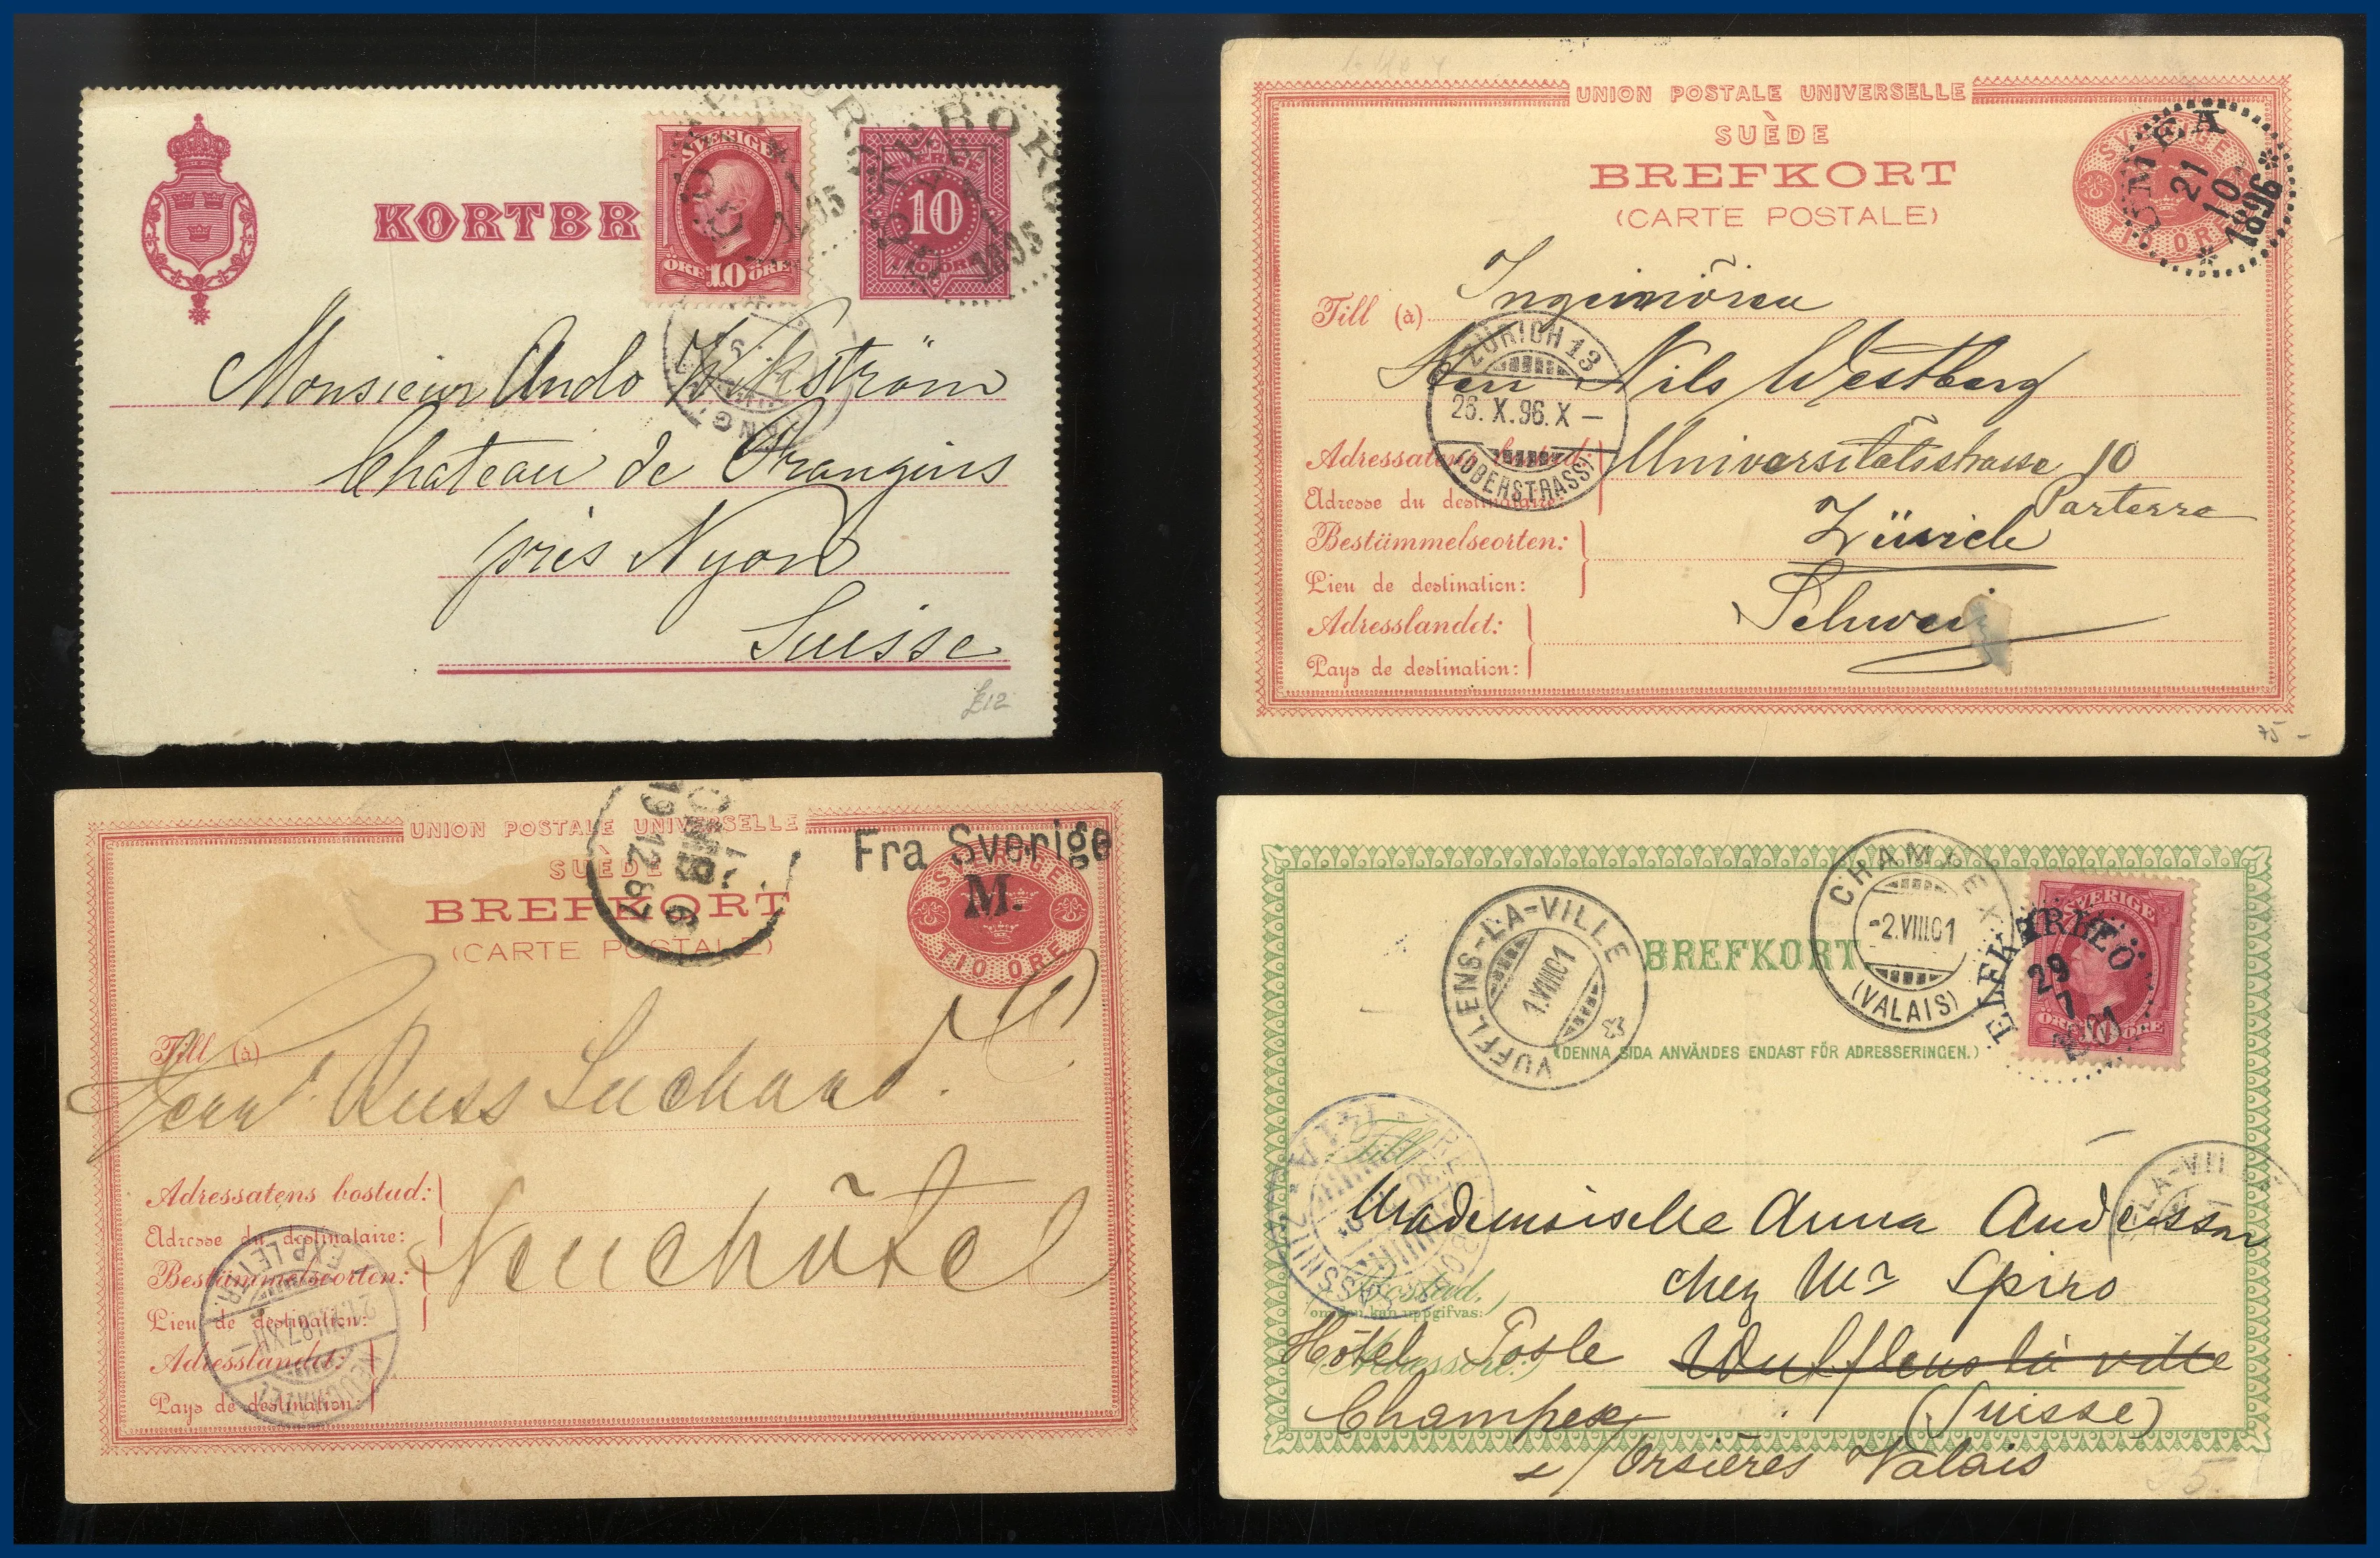 KORTBR
SVERIGE
ÖRE 10 ÖRE
10
TIO ÖRE
Monsieur Ando Wikström
Chateau de Prangins
près Nyon
Suisse
£12
UNION POSTALE UNIVERSELLE
SUÈDE
BREFKORT
(CARTE POSTALE)
SVERIGE
TIO ÖRE
UMEÅ
21
10
1896
Till (à)
Herr Nils Westberg
ZÜRICH 13
26.X.96.X-
(OBERSTRASS)
Adressatens bostad:
Universitätsstrasse 10
Parterre
Adresse du destinataire:
Bestämmelseorten:
Zürich
Lieu de destination:
Adresslandet:
Schweiz
Pays de destination:
75 -
UNION POSTALE UNIVERSELLE
SUÈDE
BREFKORT
(CARTE POSTALE)
19 12 87
Fra Sverige
M.
SVERIGE
TIO ÖRE
Till (à)
Herr Russ Suchard.
Adressatens bostad:
Adresse du destinataire:
Neuchâtel
Bestämmelseorten:
Lieu de destination:
Adresslandet:
Pays de destination:
EXP. LETTR.
NEUCHATEL
BREFKORT
(DENNA SIDA ANVÄNDES ENDAST FÖR ADRESSERINGEN.)
VUFFLENS-LA-VILLE
1.VIII.01
CHAMPEX
-2.VIII.01
(VALAIS)
SVERIGE
ÖRE 10 ÖRE
ELFKARLEÖ
29
7
Till
LA-VILLE
Mademoiselle Anna Andersson
chez Mr Spiro
Bostad,
om den kan uppgifvas:
Hôtel Poste Wufflens la ville
Adressort:
Champex (Suisse)
s/ Orsières Valais
35.